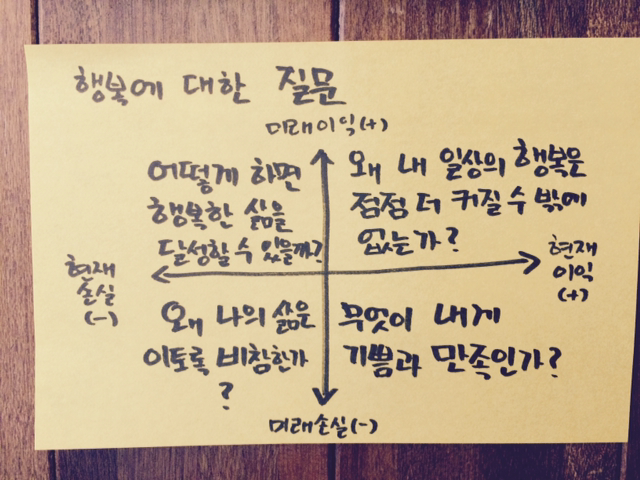 행복에 대한 질문
미래이익(+)
어떻게 하면
행복한 삶을
달성할 수 있을까?
왜 내 일상의 행복은
점점 더 커질 수 밖에
없는가?
현재
손실
(-)
현재
이익
(+)
왜 나의 삶은
이토록 비참한가
?
무엇이 내게
기쁨과 만족인가?
미래손실(-)